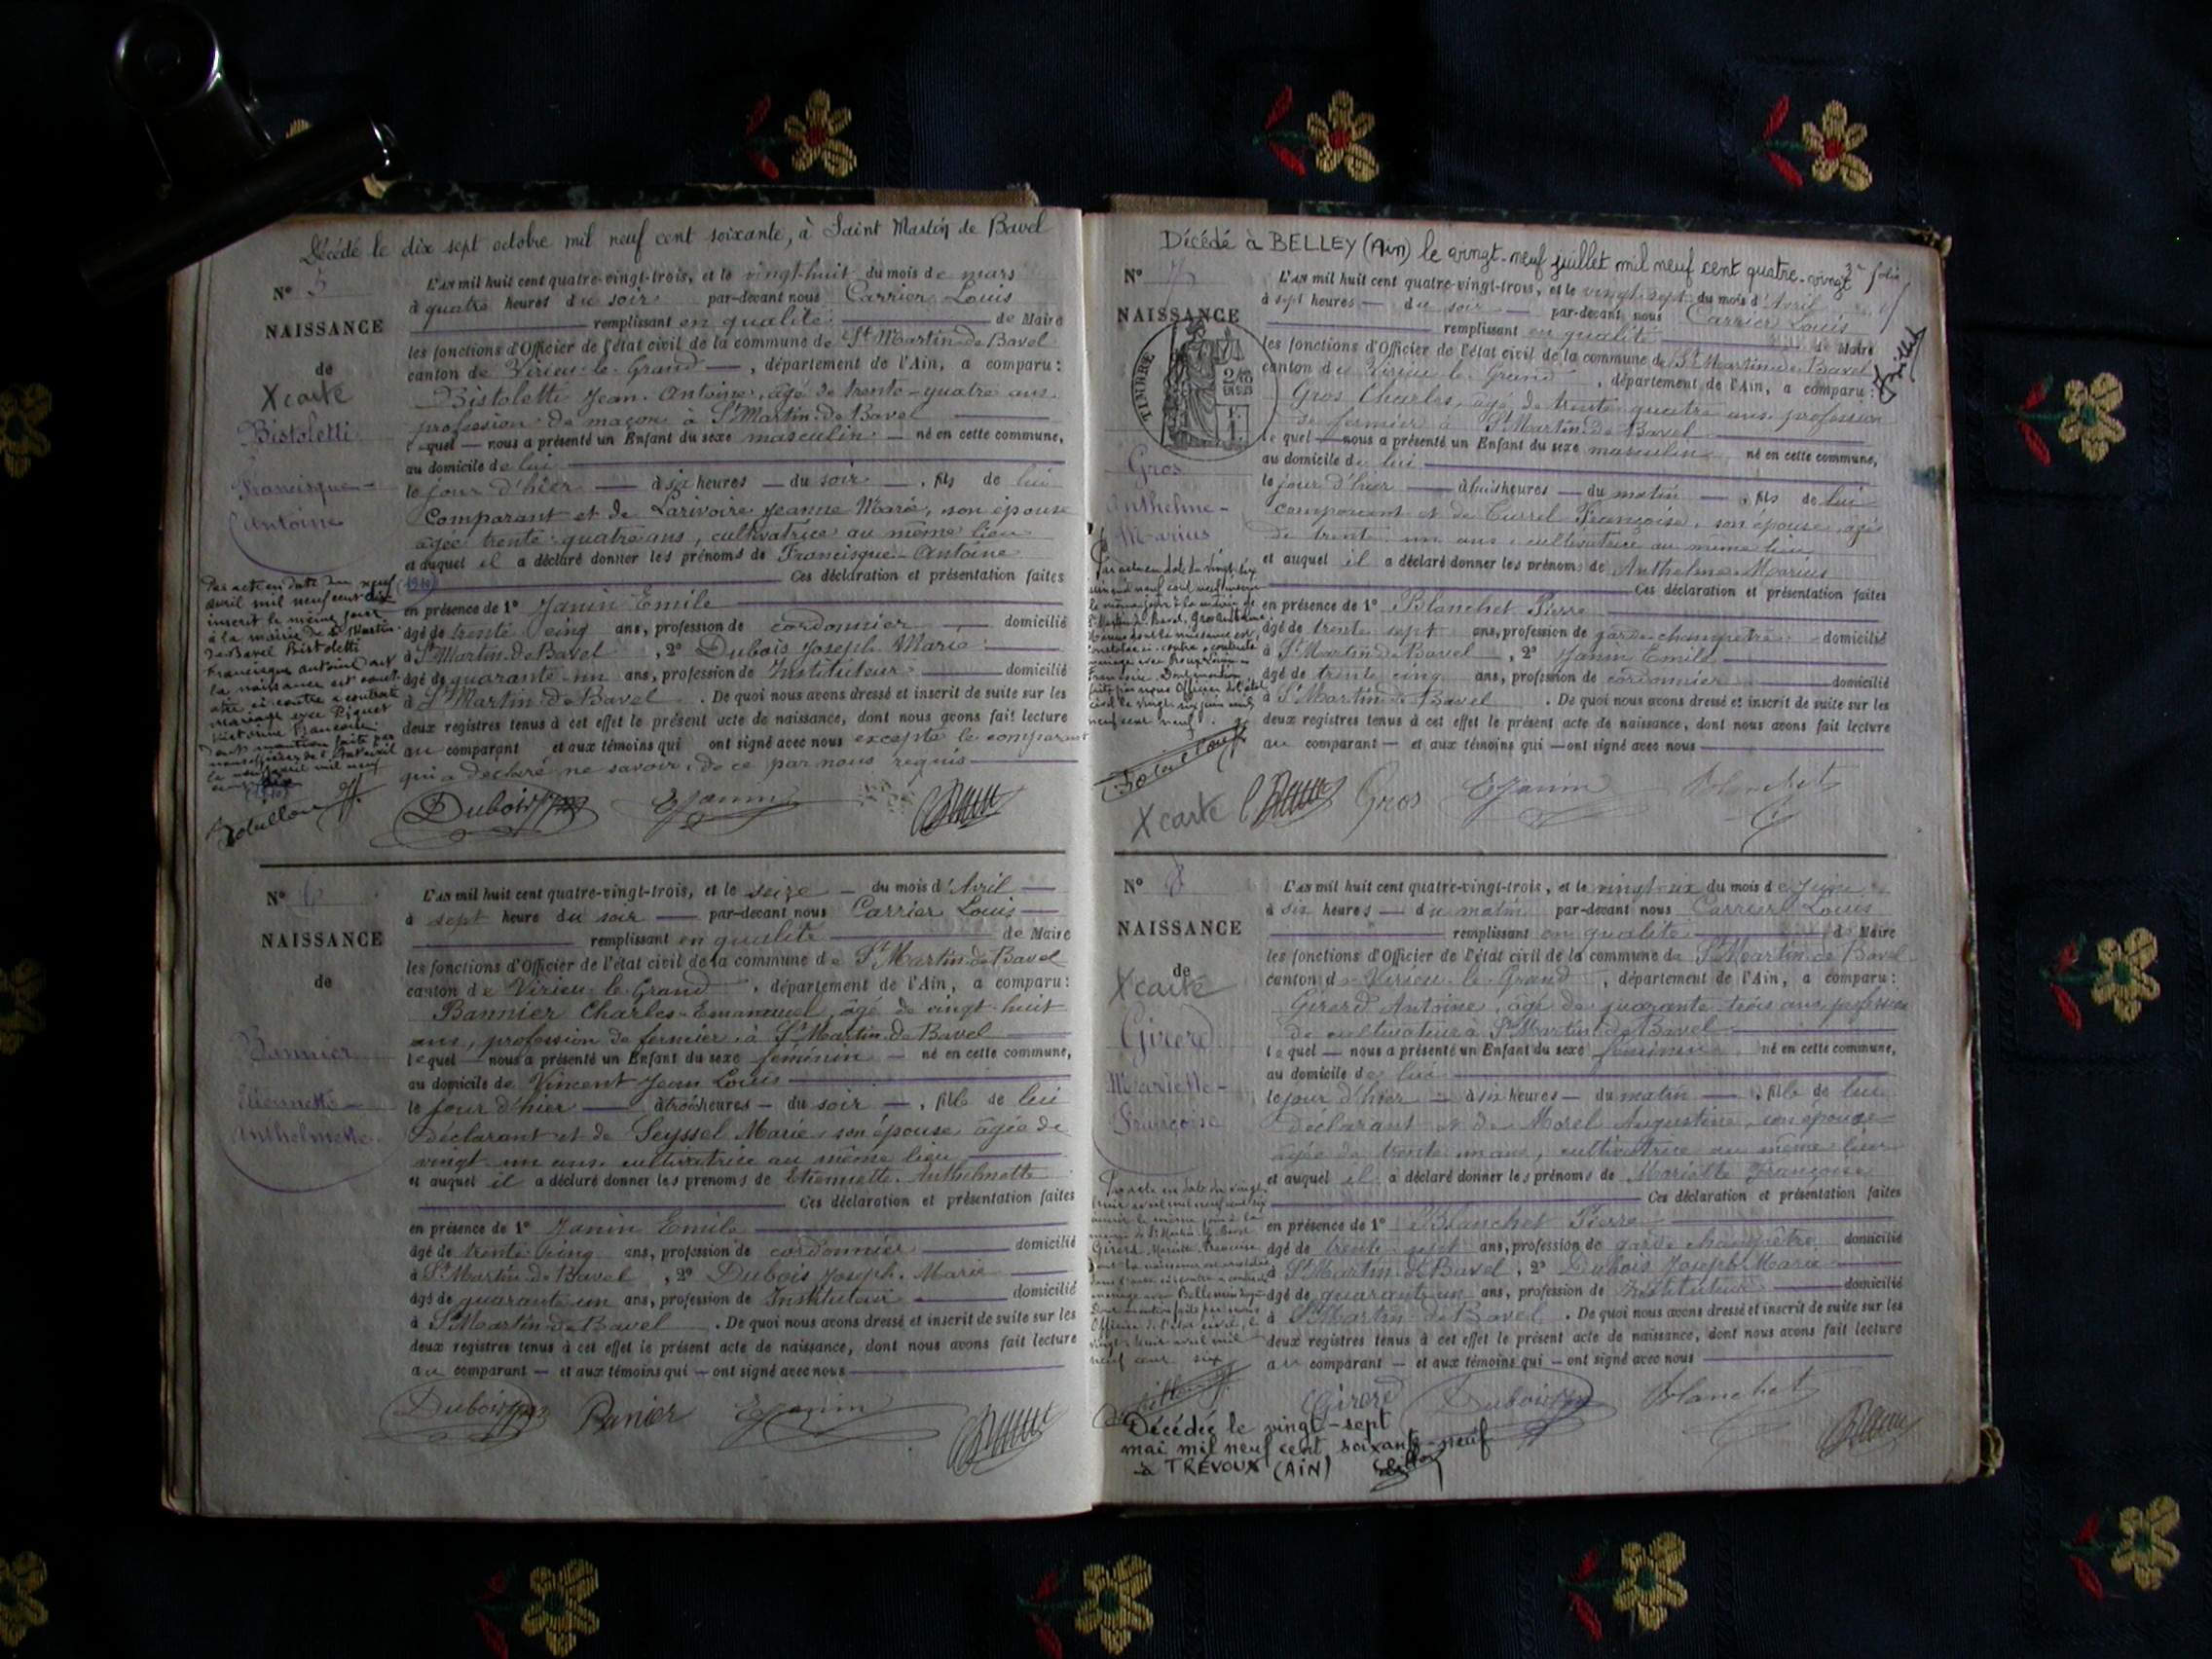 Décédé le dix sept octobre mil neuf cent soixante, à Saint Martin de Bavel
N° 5
NAISSANCE
de
X carte
Bistoletti
Francisque-
Antoine
L'AN mil huit cent quatre-vingt-trois, et le vingt-huit du mois de mars
à quatre heures du soir par-devant nous Carrier Louis
remplissant en qualité de Maire
les fonctions d'Officier de l'état civil de la commune de St Martin-de-Bavel
canton de Virieu-le-Grand, département de l'Ain, a comparu:
Bistoletti Jean-Antoine, âgé de trente-quatre ans,
profession de maçon à St Martin-de-Bavel
lequel nous a présenté un Enfant du sexe masculin né en cette commune,
au domicile de lui
le jour d'hier à six heures du soir, fils de lui
Comparant et de Larivoire Jeanne Marie, son épouse
agée trente-quatre ans, cultivatrice au même lieu
et auquel il a déclaré donner les prénoms de Francisque-Antoine
Ces déclaration et présentation faites
en présence de 1° Janin Emile
âgé de trente cinq ans, profession de cordonnier domicilié
à St Martin-de-Bavel, 2° Dubois Joseph Marie
âgé de quarante-un ans, profession de Instituteur domicilié
à St Martin-de-Bavel. De quoi nous avons dressé et inscrit de suite sur les
deux registres tenus à cet effet le présent acte de naissance, dont nous avons fait lecture
au comparant et aux témoins qui ont signé avec nous excepté le comparant
qui a déclaré ne savoir, de ce par nous requis
Par acte en date du neuf
avril mil neuf cent dix
inscrit le même jour
à la mairie de St Martin-
de Bavel Bistoletti
Francisque Antoine dont
la naissance est const
atée ci-contre a contracté
mariage avec Piquet
Victorine
dont mention faite par
nous officier de l'Etat civil
le neuf avril mil neuf
cent dix
Dubois EJanin
N° 6
NAISSANCE
de
Bannier
Etiennette-
Anthelmette
L'AN mil huit cent quatre-vingt-trois, et le seize du mois d'Avril
à sept heure du soir par-devant nous Carrier Louis
remplissant en qualité de Maire
les fonctions d'Officier de l'état civil de la commune de St Martin-de-Bavel
canton de Virieu-le-Grand, département de l'Ain, a comparu:
Bannier Charles-Emanuel, âgé de vingt-huit
ans, profession de fermier, à St Martin-de-Bavel
lequel nous a présenté un Enfant du sexe féminin né en cette commune,
au domicile de Vincent Jean Louis
le jour d'hier à trois heures du soir, fille de lui
Déclarant et de Seyssel Marie, son épouse, âgée de
vingt-un ans, cultivatrice au même lieu
et auquel il a déclaré donner les prénoms de Etiennette-Anthelmette
Ces déclaration et présentation faites
en présence de 1° Janin Emile
âgé de trente cinq ans, profession de cordonnier domicilié
à St Martin-de-Bavel, 2° Dubois Joseph-Marie
âgé de quarante un ans, profession de Instituteur domicilié
à St Martin-de-Bavel. De quoi nous avons dressé et inscrit de suite sur les
deux registres tenus à cet effet le présent acte de naissance, dont nous avons fait lecture
au comparant et aux témoins qui ont signé avec nous
Dubois Banier EJanin
Décédé à BELLEY (Ain) le vingt-neuf juillet mil neuf cent quatre-vingt
N° 7
NAISSANCE
TIMBRE
Gros
Anthelme-
Marius
3e folio
L'AN mil huit cent quatre-vingt-trois, et le vingt-sept du mois d'Avril
à sept heures du soir par-devant nous Carrier Louis
remplissant en qualité de Maire
les fonctions d'Officier de l'état civil de la commune de St Martin-de-Bavel
canton de Virieu-le-Grand, département de l'Ain, a comparu:
Gros Charles, âgé de trente-quatre ans, profession
de fermier à St Martin-de-Bavel
lequel nous a présenté un Enfant du sexe masculin né en cette commune,
au domicile de lui
le jour d'hier à huit heures du matin, fils de lui
comparant et de Currel Françoise, son épouse, agée
de trente-un ans, cultivatrice au même lieu
et auquel il a déclaré donner les prénoms de Anthelme-Marius
Ces déclaration et présentation faites
en présence de 1° Blanchet Pierre
âgé de trente sept ans, profession de garde champêtre domicilié
à St Martin-de-Bavel, 2° Janin Emile
âgé de trente cinq ans, profession de cordonnier domicilié
à St Martin-de-Bavel. De quoi nous avons dressé et inscrit de suite sur les
deux registres tenus à cet effet le présent acte de naissance, dont nous avons fait lecture
au comparant et aux témoins qui ont signé avec nous
X carte Gros EJanin Blanchet
N° 8
NAISSANCE
de
X carte
Girerd
Mariette-
Françoise
L'AN mil huit cent quatre-vingt-trois, et le vingt-deux du mois de Juin
à six heures du matin par-devant nous Carrier Louis
remplissant en qualité de Maire
les fonctions d'Officier de l'état civil de la commune de St Martin-de-Bavel
canton de Virieu-le-Grand, département de l'Ain, a comparu:
Girerd Antoine, âgé de quarante-trois ans profession
de cultivateur à St Martin-de-Bavel
lequel nous a présenté un Enfant du sexe féminin né en cette commune,
au domicile de lui
le jour d'hier à six heures du matin, fille de lui
Déclarant et de Morel Augustine, son épouse
âgée de trente un ans, cultivatrice au même lieu
et auquel il a déclaré donner les prénoms de Mariette Françoise
Ces déclaration et présentation faites
en présence de 1° Blanchet Pierre
âgé de trente-sept ans, profession de garde champêtre domicilié
à St Martin-de-Bavel, 2° Dubois Joseph Marie
âgé de quarante un ans, profession de Instituteur domicilié
à St Martin-de-Bavel. De quoi nous avons dressé et inscrit de suite sur les
deux registres tenus à cet effet le présent acte de naissance, dont nous avons fait lecture
au comparant et aux témoins qui ont signé avec nous
Girerd Dubois Blanchet
Décédée le vingt-sept
mai mil neuf cent soixante-neuf
à TREVOUX (AIN)